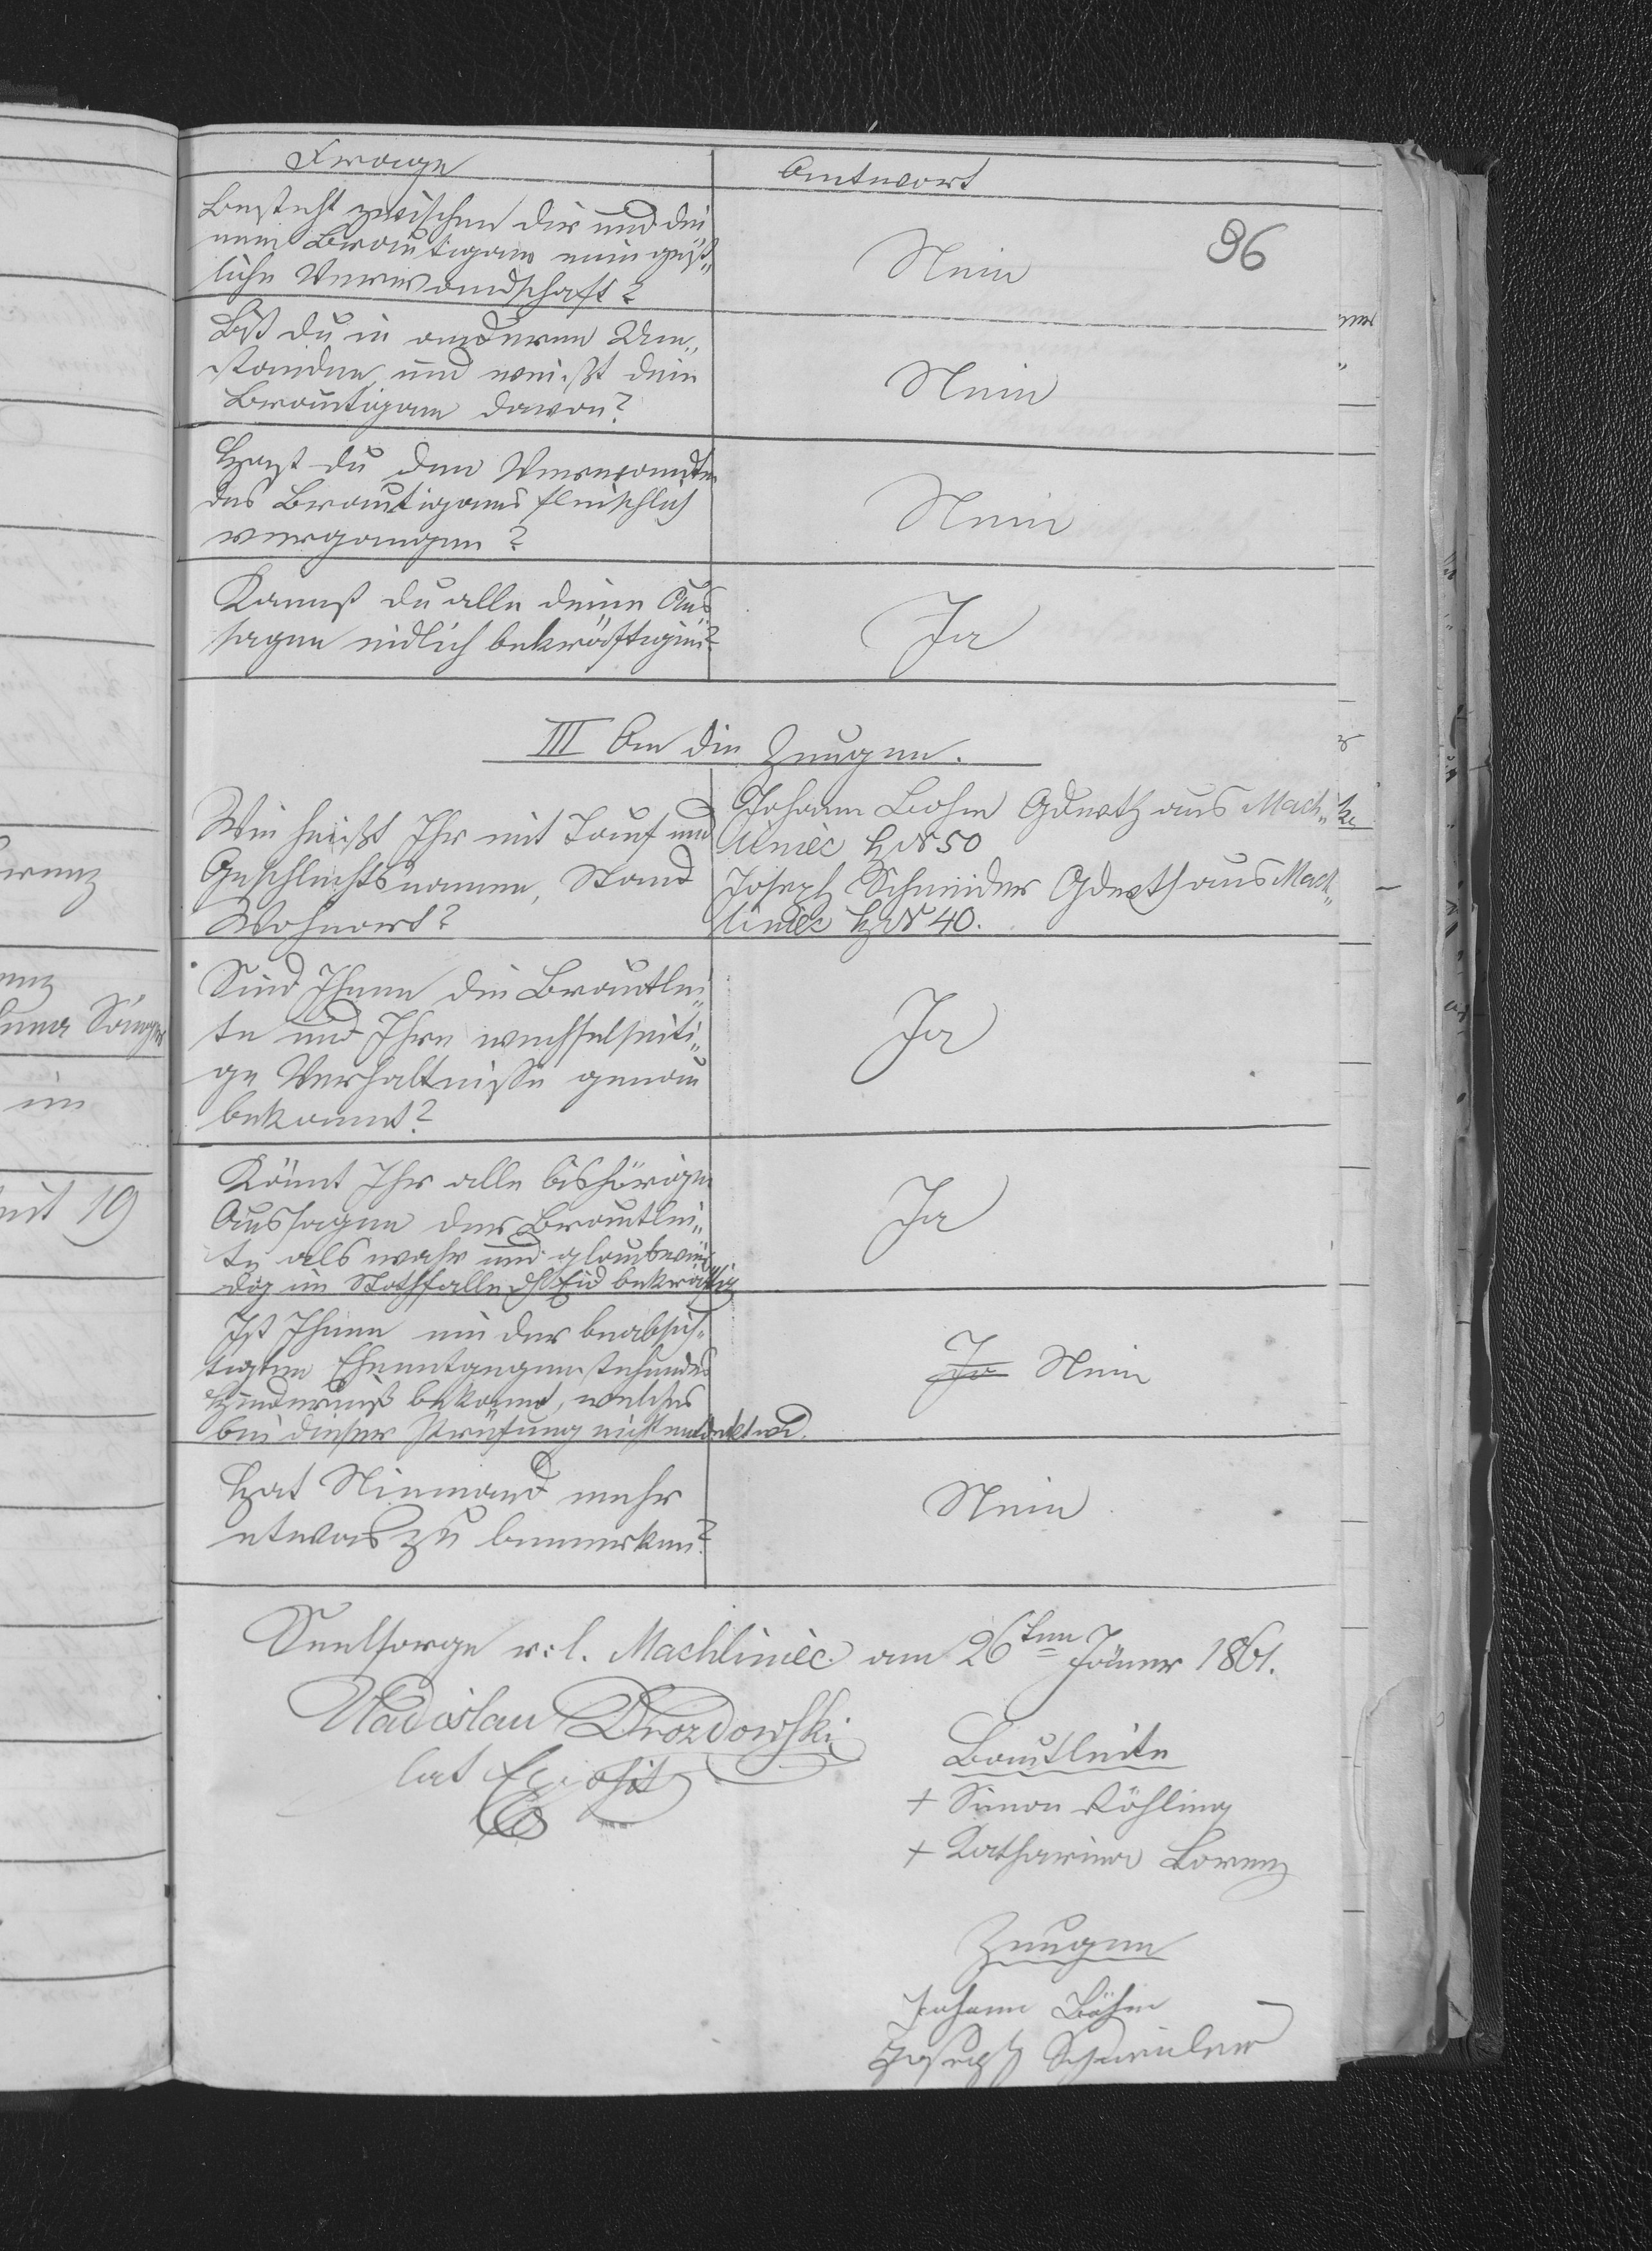 Frage
Antwort
96
Besteht zwischen dir und dei
nem Bräutigam eine geist„
liche Verwandschaft?
Nein
Bist du in anderen Um„
ständen und weißt dein
Bräutigam davon?
Nein
Hast du den Verwandten
des Bräutigams fleischlich
vergangen?
Nein
Kannst du alle deine Aus
sagen eidlich bekräftigen?
Ja
III An die Zeugen.
Wie heißt Ihr mit Tauf und
Geschlechtsnamen, Stand
Wohnort?
Johann Bohm Gdwth aus Mach„
liniec H N 50
Joseph Schneider Gdwth aus Mach„
liniec H N 40.
Sind Ihnen die Brautlei„
te und Ihre wechselseiti„
ge Verhältnisse genau
bekannt?
Ja
Könnt Ihr alle bishörigen
Aussagen der Brautlei„
te als wahr und glaubwür
dig im Nothfalle Eid bekräftig
Ja
Ist Ihnen ein der beabsich„
tigten Ehe entgegenstehendes
Hinderniß bekannt, welches
bei dieser Prüfung nicht entdekt wd.
Ja Nein
Hat Niemand mehr
etwas zu bemerken?
Nein
Seelsorge r: l. Machliniec am 26ten Jänner 1861.
Wladislau Drozdowski
lat Exposit
Brautleute
+ Simon Röhling
+ Katharina Lorenz
Zeugen
Johann Böhm
Joseph Schneider